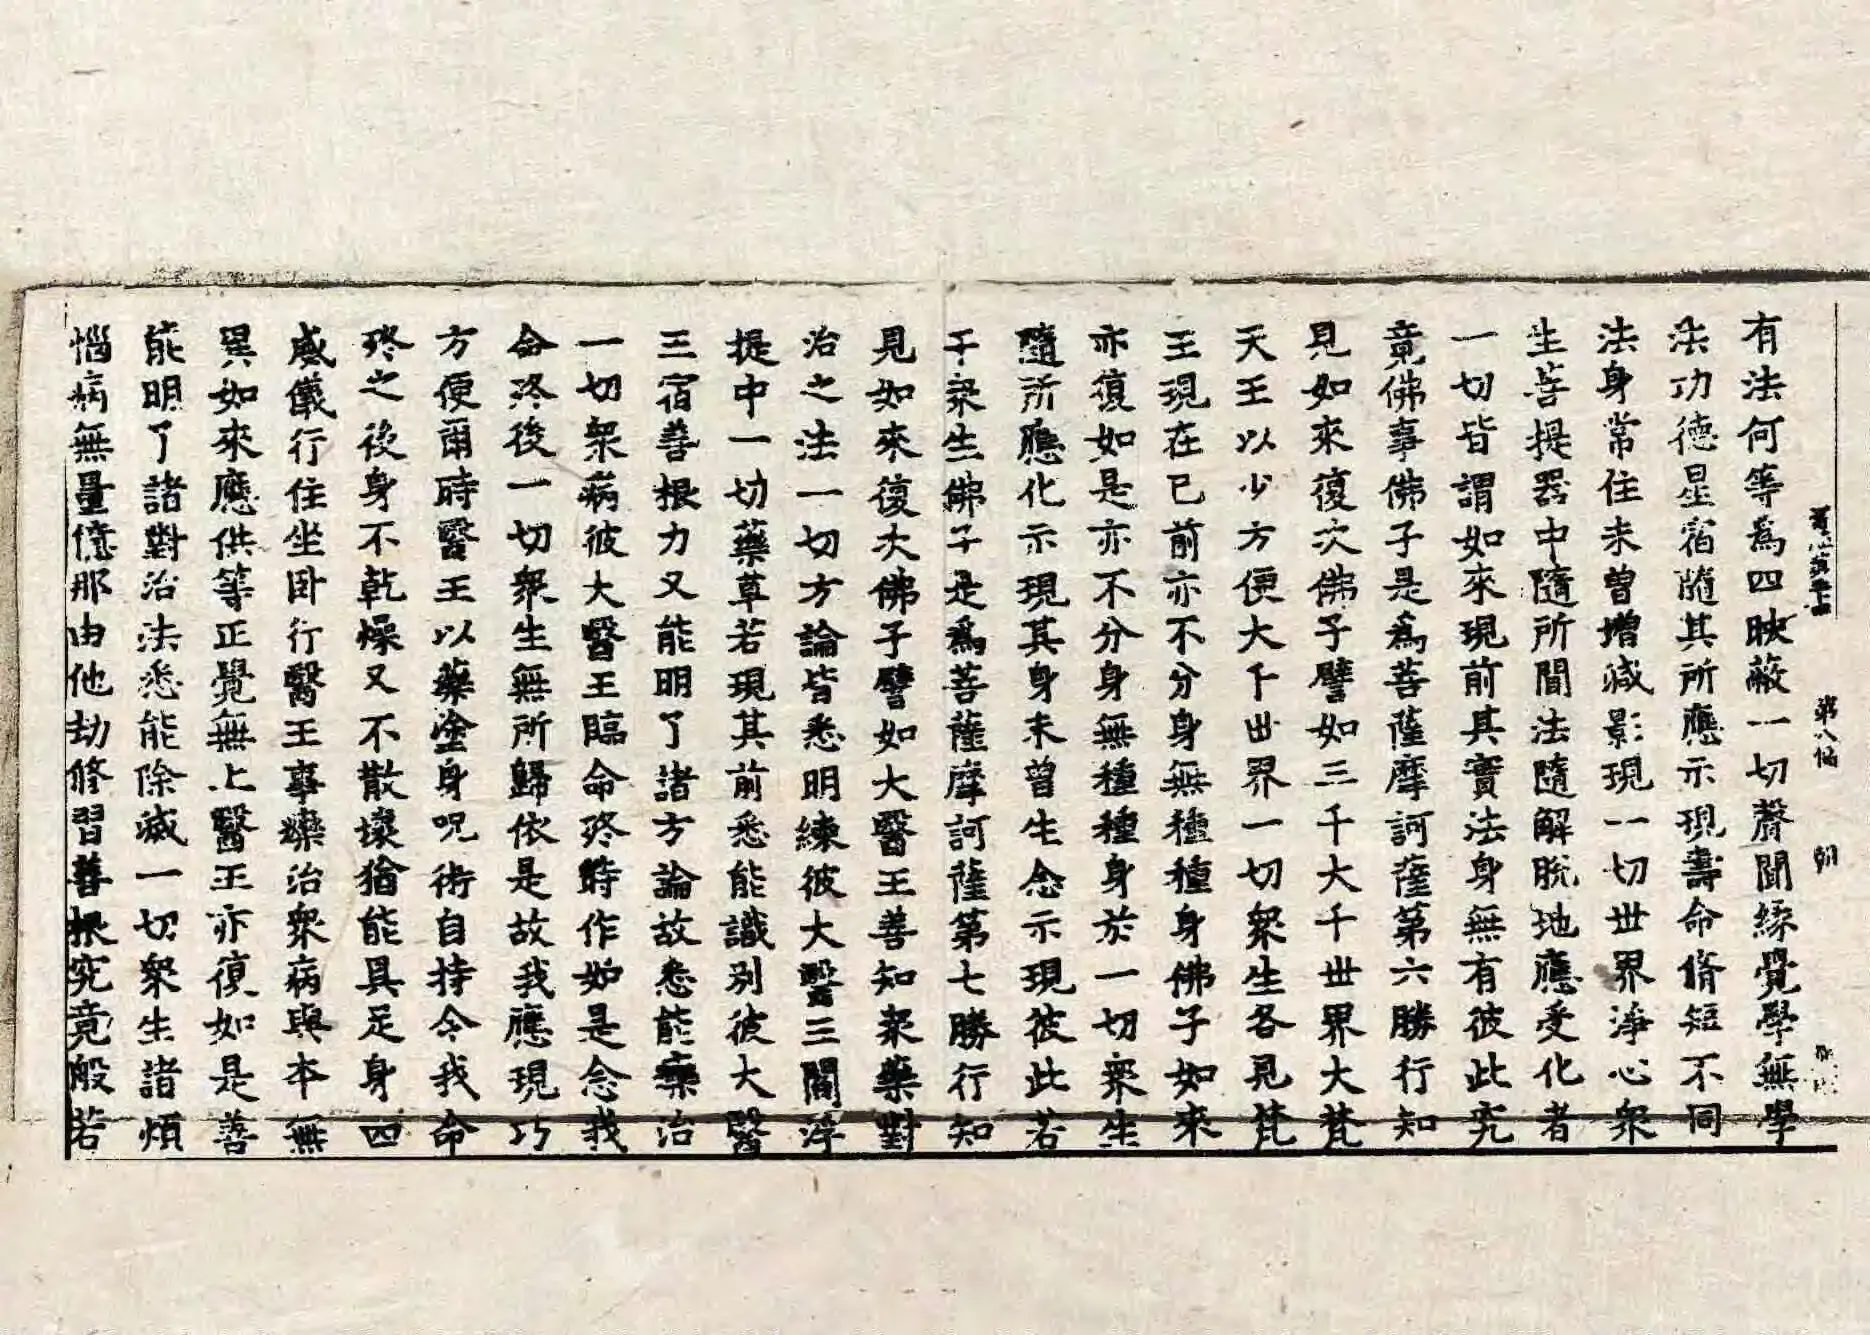 第八張
朝
有法何等為四映蔽一切聲聞緣覺學無學
法功德星宿隨其所應示現壽命脩短不同
法身常住未曾增減影現一切世界淨心眾
生菩提器中隨所聞法隨解脫地應受化者
一切皆謂如來現前其實法身無有彼此究
竟佛事佛子是為菩薩摩訶薩第六勝行知
見如來復次佛子譬如三千大千世界大梵
天王以少方便大千世界一切眾生各見梵
王現在已前亦不分身無種種身佛子如來
亦復如是亦不分身無種種身於一切眾生
隨所應化示現其身未曾生念示現彼此若
干眾生佛子是為菩薩摩訶薩第七勝行知
見如來復次佛子譬如大醫王善知眾藥對
治之法一切方論皆悉明練彼大醫三閻浮
提中一切藥草若現其前悉能識別彼大醫
三宿善根力又能明了諸方論故悉能藥治
一切眾病彼大醫王臨命終時作如是念我
命終後一切眾生無所歸依是故我應現巧
方便爾時醫王以藥塗身呪術自持令我命
終之後身不乾燥又不散壞猶能具足身四
威儀行住坐臥行醫王事藥治眾病與本無
異如來應供等正覺無上醫王亦復如是善
能明了諸對治法悉能除滅一切眾生諸煩
惱病無量億那由他劫修習善根究竟般若